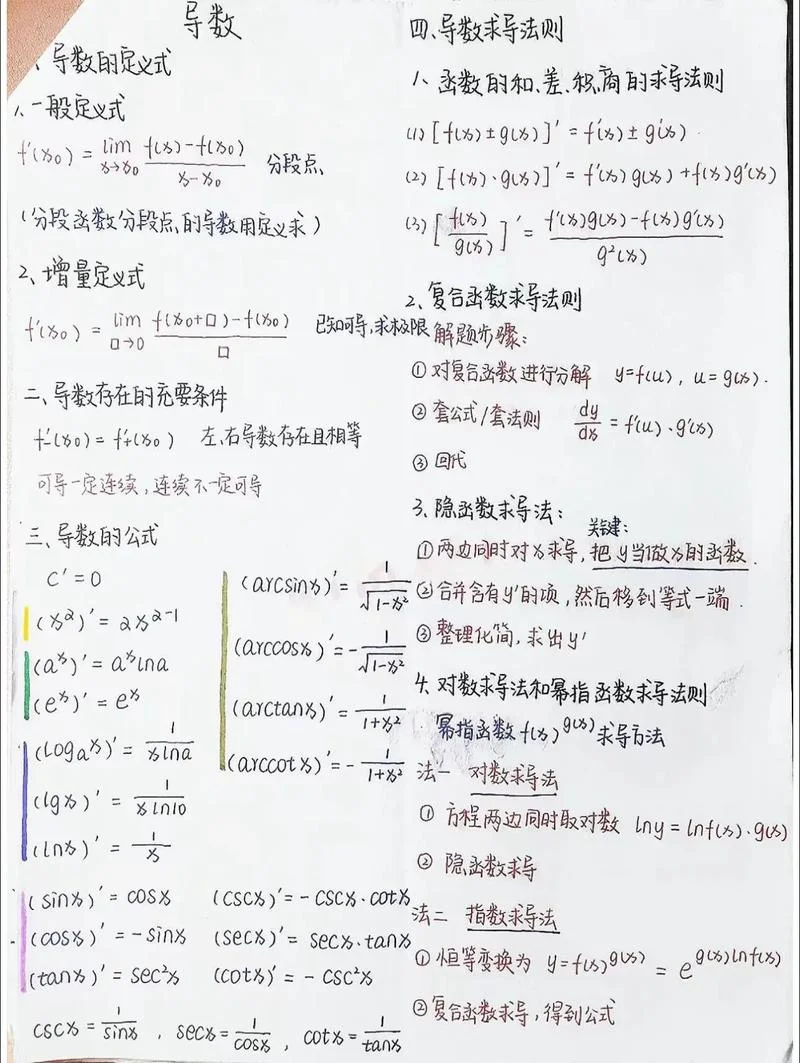 导数
、导数的定义式
1、一般定义式
f'(x₀) = lim x→x₀ f(x)-f(x₀) / x-x₀ 分段点、
(分段函数分段点的导数用定义求)
2、增量定义式
f'(x₀) = lim □→0 f(x₀+□)-f(x₀) / □ 已知可导,求极限
二、导数存在的充要条件
f'₋(x₀) = f'₊(x₀) 左、右导数存在且相等
可导一定连续,连续不一定可导
三、导数的公式
C' = 0
(x²)' = 2x²⁻¹
(aˣ)' = aˣlna
(eˣ)' = eˣ
(logₐx)' = 1 / xlna
(lgx)' = 1 / xln10
(lnx)' = 1 / x
(arcsinx)' = 1 / √1-x²
(arccosx)' = - 1 / √1-x²
(arctanx)' = 1 / 1+x²
(arccotx)' = - 1 / 1+x²
(sinx)' = cosx (cscx)' = - cscx·cotx
(cosx)' = -sinx (secx)' = secx·tanx
(tanx)' = sec²x (cotx)' = - csc²x
cscx = 1 / sinx , secx = 1 / cosx , cotx = 1 / tanx
四、导数求导法则
1、函数的和、差、积、商的求导法则
(1) [f(x)±g(x)]' = f'(x)±g'(x)
(2) [f(x)·g(x)]' = f'(x)g(x)+f(x)g'(x)
(3) [f(x) / g(x)]' = f'(x)g(x)-f(x)g'(x) / g²(x)
2、复合函数求导法则
解题步骤:
① 对复合函数进行分解 y=f(u), u=g(x).
② 套公式/套法则 dy / dx = f'(u)·g'(x)
③ 回代
3、隐函数求导法:
关键:
①两边同时对x求导,把y当做x的函数.
②合并含有y'的项,然后移到等式一端.
③ 整理化简,求出y'
4、对数求导法和幂指函数求导法则
幂指函数f(x)^g(x)求导方法
法一 对数求导法
① 方程两边同时取对数 lny = lnf(x)·g(x)
② 隐函数求导
法二 指数求导法
① 恒等变换为 y=f(x)^g(x) = e^g(x)lnf(x)
②复合函数求导,得到公式